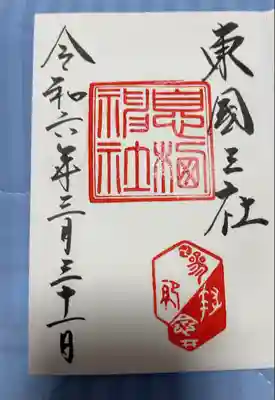 東國三社
息栖神社
参拝記念
令和六年三月三十一日